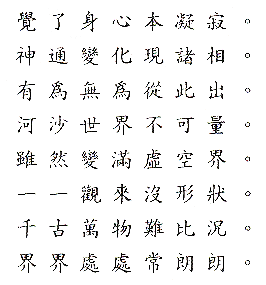 覺了身心本凝寂。
神通變化現諸相。
有為無為從此出。
河沙世界不可量。
雖然變滿虛空界。
一一觀來沒形狀。
千古萬物難比況。
界界處處常朗朗。